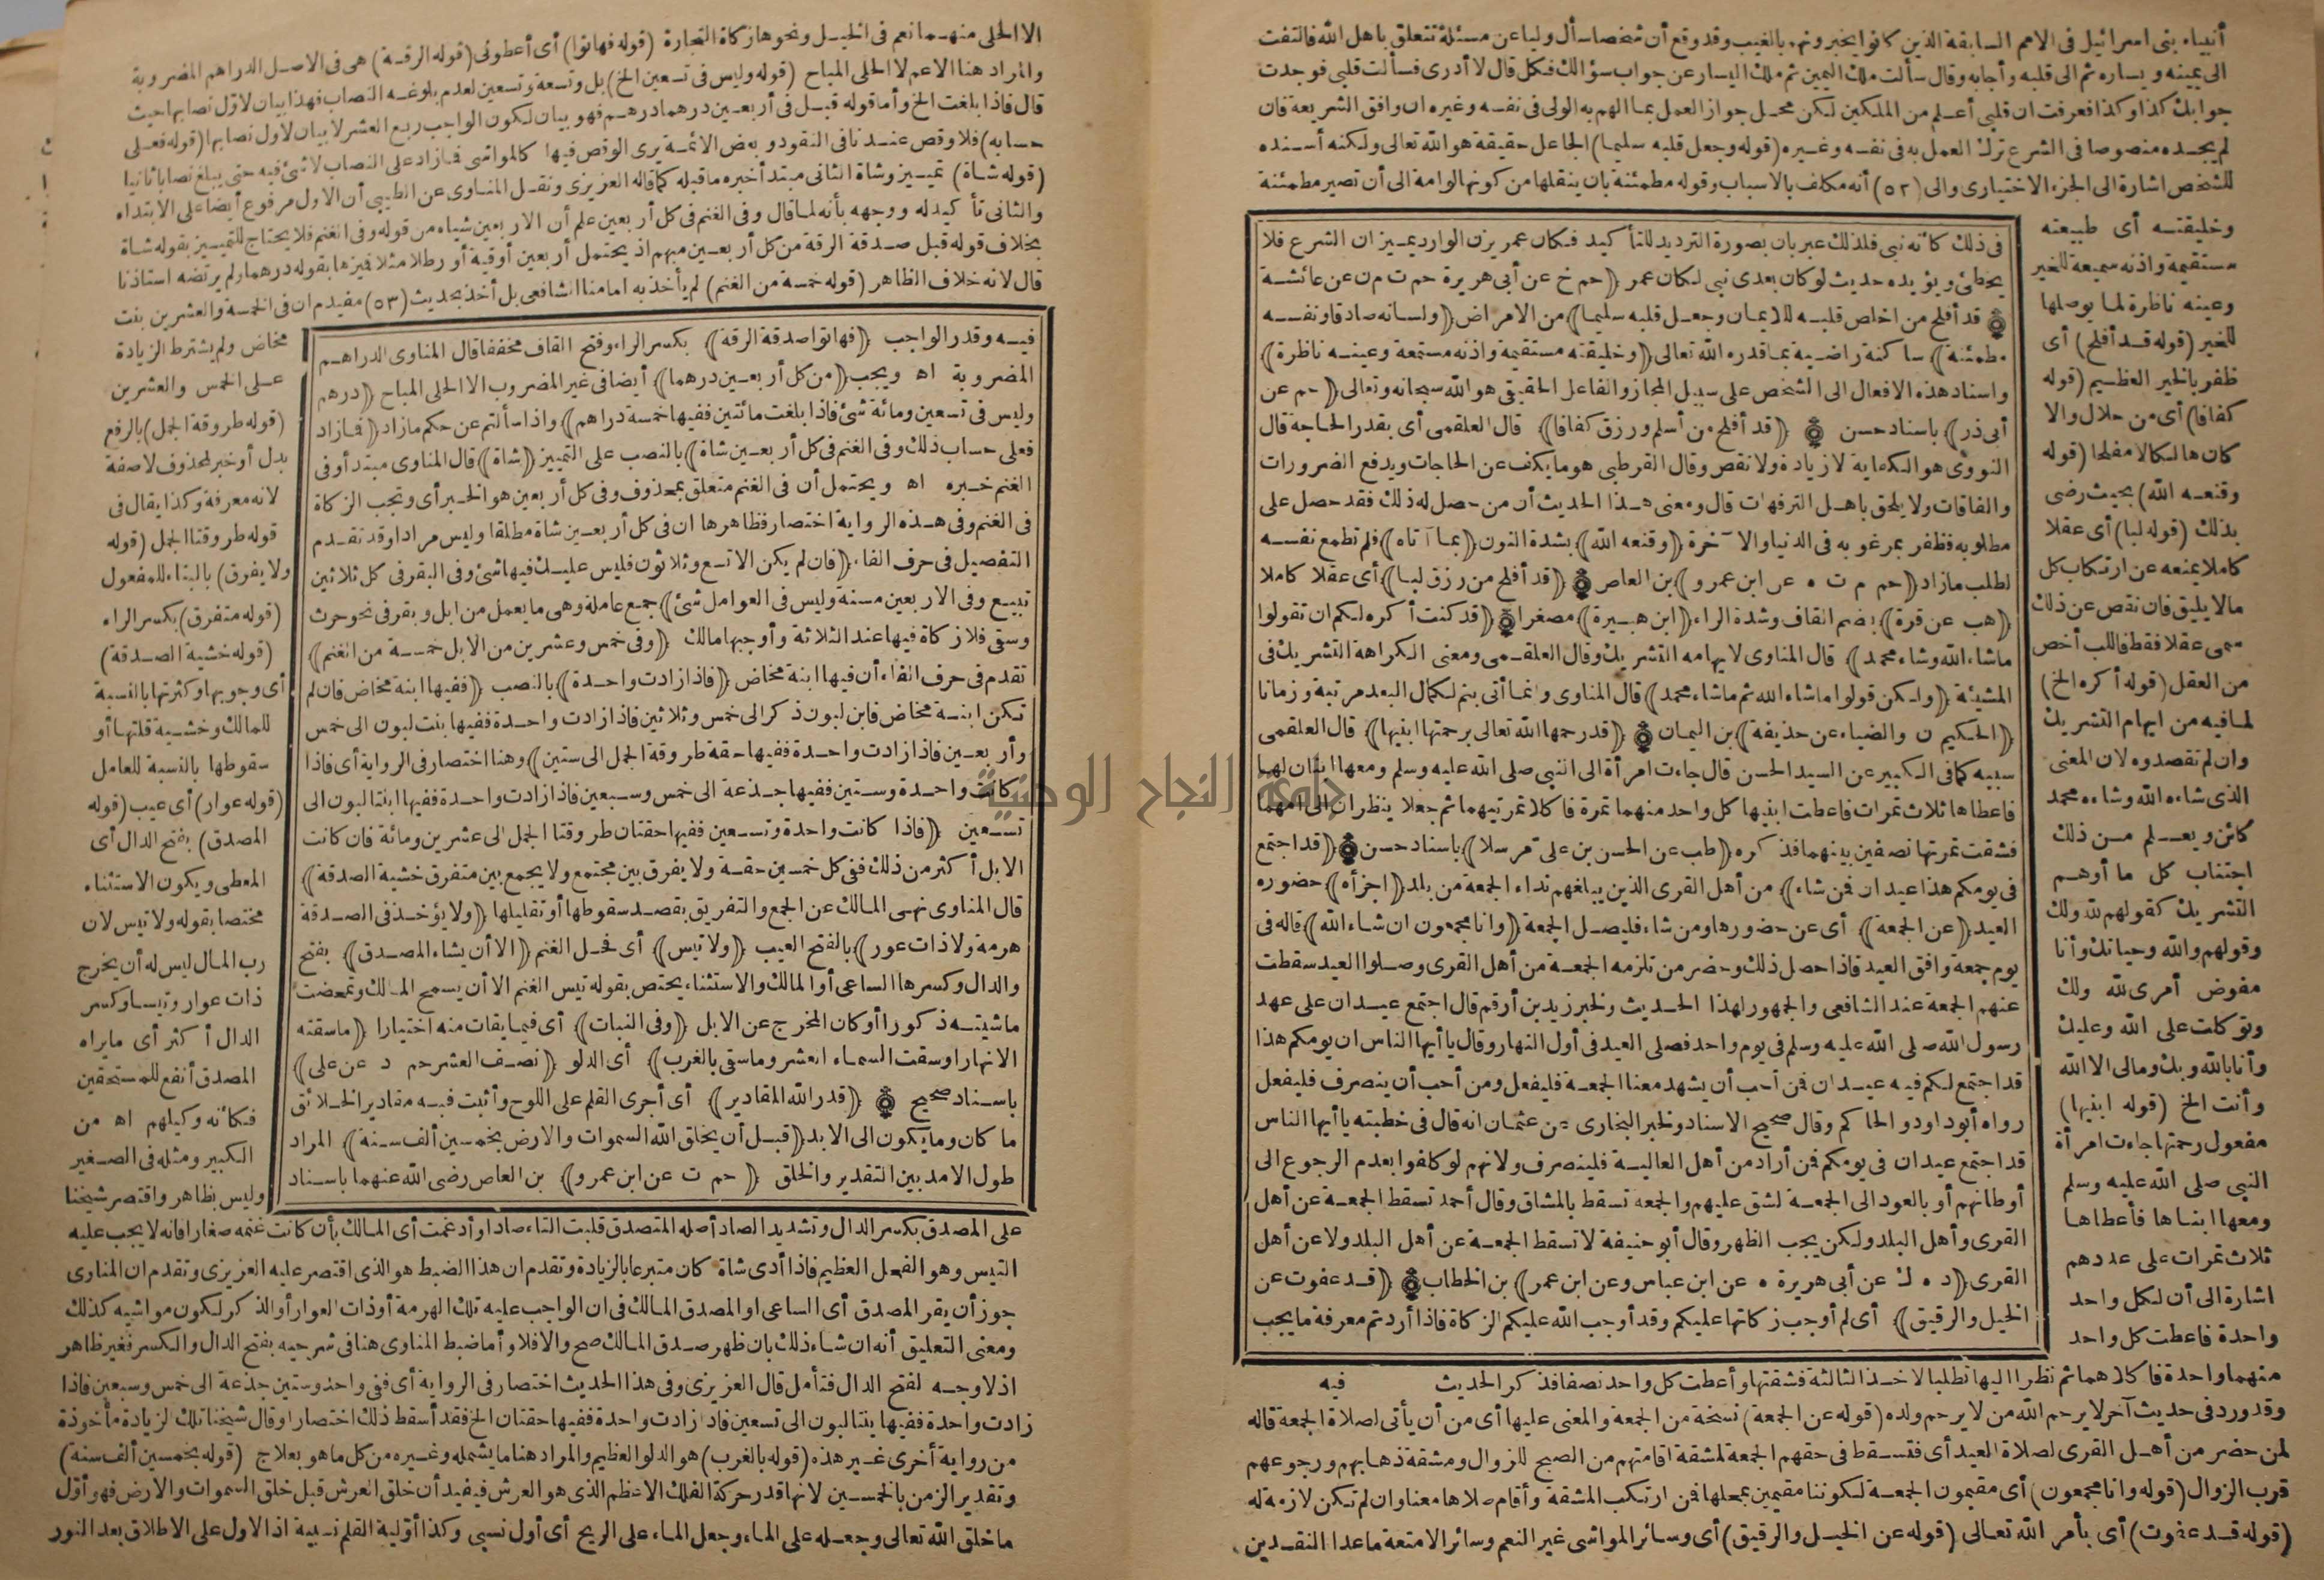 أنبياء بنى اسرائيل فى الامم السابقة الذين كانوا يخبرونهم بالغيب وقد وقع أن شخصا سأل وليا عن مسئلة تتعلق باهل الله فالتفت
الى يمينه ويساره ثم الى قلبه وأجابه وقال سألت ملك اليمين ثم ملك اليسار عن جواب سؤالك فكل قال لا أدرى فسألت قلبى فوجدت
جوابك كذا وكذا فعرفت ان قلبى أعلم من الملكين لكن محل جواز العمل بما الهم به الولى فى نفسه وغيره ان وافق الشريعة فان
لم يجده منصوصا فى الشرع ترك العمل به فى نفسه وغيره (قوله وجعل قلبه سليما) الجاعل حقيقة هو الله تعالى ولكنه أسنده
للشخص اشارة الى الجزء الاختيارى والى (٥٢) أنه مكلف بالاسباب وقوله مطمئنة بان ينقلها من كونها لوامة الى أن تصير مطمئنة
وخليقته أى طبيعته
مستقيمة واذنه سميعة للخير
وعينه ناظرة لما يوصلها
للخير (قوله قد أفلح) أى
ظفر بالخير العظيم (قوله
كفافا) أى من حلال والا
كان هالكا لا مفلحا (قوله
وقنعه الله) بحيث رضى
بذلك (قوله لبا) أى عقلا
كاملا يمنعه عن ارتكاب كل
مالا يليق فان نقص عن ذلك
سمى عقلا فقط فاللب أخص
من العقل (قوله أكره الخ)
لما فيه من ايهام التشريك
وان لم تقصدوه لان المعنى
الذى شاءه الله وشاءه محمد
كائن ويعلم من ذلك
اجتناب كل ما أوهم
التشريك كقولهم لله ولك
وقولهم والله وحياتك وأنا
مفوض أمرى لله ولك
وتوكلت على الله وعليك
وأنا بالله وبك ومالى الا الله
وأنت الخ (قوله ابنيها)
مفعول رحمتها جاءت امرأة
النبى صلى الله عليه وسلم
ومعها ابناها فأعطاها
ثلاث تمرات على عددهم
اشارة الى أن لكل واحد
واحدة فاعطت كل واحد
فى ذلك كأنه نبى فلذلك عبر بان بصورة الترديد للتأكيد فكان عمر يزن الوارد بميزان الشرع فلا
يخطئ ويؤيده حديث لو كان بعدى نبى لكان عمر (حم خ عن أبى هريرة حم ت م ن عن عائشة
قد أفلح من اخلص قلبه للايمان وجعل قلبه سليما) من الامراض (ولسانه صادقا ونفسه
مطمئنة) ساكنة راضية بما قدره الله تعالى (وخليقته مستقيمة واذنه مستمعة وعينه ناظرة)
واسناد هذه الافعال الى الشخص على سبيل المجاز والفاعل الحقيقى هو الله سبحانه وتعالى (حم عن
أبى ذر) باسناد حسن (قد أفلح من أسلم ورزق كفافا) قال العلقمى أى بقدر الحاجة قال
النووى هو الكفاية لا زيادة ولا نقص وقال القرطبى هو ما يكف عن الحاجات ويدفع الضرورات
والفاقات ولا يلحق باهل الترفهات قال ومعنى هذا الحديث أن من حصل له ذلك فقد حصل على
مطلوبه فظفر بمرغوبه فى الدنيا والآخرة (وقنعه الله) بشدة النون (بما آتاه) فلم تطمع نفسه
لطلب مازاد (حم م ت ه عن ابن عمرو) بن العاص (قد أفلح من رزق لبا) أى عقلا كاملا
(هب عن قرة) بضم القاف وشدة الراء (ابن هبيرة) مصغرا (قد كنت أكره لكم ان تقولوا
ماشاء الله وشاء محمد) قال المناوى لايهامه التشريك وقال العلقمى ومعنى الكراهة التشريك فى
المشيئة (ولكن قولوا ماشاء الله ثم ماشاء محمد) قال المناوى وانما أتى بثم لكمال البعد مرتبة وزمانا
(الحكيم ن والضياء عن حذيفة) بن اليمان (قد رحمها الله تعالى برحمتها ابنيها) قال العلقمى
سببه كما فى الكبير عن السيد الحسن قال جاءت امرأة الى النبى صلى الله عليه وسلم ومعها ابنان لها
فاعطاها ثلاث تمرات فاعطت ابنيها كل واحد منهما تمرة فاكلا تمرتيهما ثم جعلا ينظران الى أمهما
فشقت تمرتها نصفين بينهما فذكره (طب عن الحسن بن على مرسلا) باسناد حسن (قد اجتمع
فى يومكم هذا عيدان فمن شاء) من أهل القرى الذين يبلغهم نداء الجمعة من بلد (اجزأه) حضوره
العيد (عن الجمعة) أى عن حضورها ومن شاء فليصل الجمعة (وانا مجمعون ان شاء الله) قاله فى
يوم جمعة وافق العيد فاذا حصل ذلك وحضر من تلزمه الجمعة من أهل القرى وصلوا العيد سقطت
عنهم الجمعة عند الشافعى والجمهور لهذا الحديث ولخبر زيد بن أرقم قال اجتمع عيدان على عهد
رسول الله صلى الله عليه وسلم فى يوم واحد فصلى العيد فى أول النهار وقال يا أيها الناس ان يومكم هذا
قد اجتمع لكم فيه عيدان فمن أحب أن يشهد معنا الجمعة فليفعل ومن أحب أن ينصرف فليفعل
رواه أبو داود والحاكم وقال صحيح الاسناد ولخبر البخارى عن عثمان انه قال فى خطبته يا أيها الناس
قد اجتمع عيدان فى يومكم فمن أراد من أهل العالية فلينصرف ولانهم لو كلفوا بعدم الرجوع الى
أوطانهم أو بالعود الى الجمعة لشق عليهم والجمعة تسقط بالمشاق وقال أحمد تسقط الجمعة عن أهل
القرى وأهل البلد ولكن يجب الظهر وقال أبو حنيفة لا تسقط الجمعة عن أهل البلد ولا عن أهل
القرى (د ه ك عن أبى هريرة ه عن ابن عباس وعن ابن عمر) بن الخطاب (قد عفوت عن
الخيل والرقيق) أى لم أوجب زكاتها عليكم وقد أوجب الله عليكم الزكاة فاذا أردتم معرفة ما يجب
منهما واحدة فاكلاهما ثم نظرا اليها تطلبا لاخذ الثالثة فشقتها وأعطت كل واحد نصفا فذكر الحديث فيه
وقد ورد فى حديث آخر لا يرحم الله من لا يرحم ولده (قوله عن الجمعة) نسخة من الجمعة والمعنى عليها أى من أن يأتى لصلاة الجمعة قاله
لمن حضر من أهل القرى لصلاة العيد أى فتسقط فى حقهم الجمعة لمشقة اقامتهم من الصبح للزوال ومشقة ذهابهم ورجوعهم
قرب الزوال (قوله وانا مجمعون) أى مقيمون الجمعة لكوننا مقيمين بمحلها فمن ارتكب المشقة وأقام صلاها معنا وان لم تكن لازمة له
(قوله قد عفوت) أى بأمر الله تعالى (قوله عن الخيل والرقيق) أى وسائر المواشى غير النعم وسائر الامتعة ماعدا النقدين
الا الحلى منهما نعم فى الخيل ونحوها زكاة التجارة (قوله فهاتوا) أى أعطونى (قوله الرقة) هى فى الاصل الدراهم المضروبة
والمراد هنا الاعم لا الحلى المباح (قوله وليس فى تسعين الخ) بل وتسعة وتسعين لعدم بلوغه النصاب فهذا بيان لاول نصابها حيث
قال فاذا بلغت الخ وأما قوله قبل فى أربعين درهما درهم فهو بيان لكون الواجب ربع العشر لا بيان لاول نصابها (قوله فعلى
حسابه) فلا وقص عندنا فى النقود وبعض الائمة يرى الوقص فيها كالمواشى فمازاد على النصاب لاشئ فيه حتى يبلغ نصابا ثانيا
(قوله شاة) تمييز وشاة الثانى مبتدأ خبره ماقبله كما قاله العزيزى ونقل المناوى عن الطيبى أن الاول مرفوع أيضا على الابتداء
والثانى تأكيد له ووجهه بأنه لما قال وفى الغنم فى كل أربعين علم أن الاربعين شياه من قوله وفى الغنم فلا يحتاج للتمييز بقوله شاة
بخلاف قوله قبل صدقة الرقة من كل أربعين مبهم اذ يحتمل أربعين أوقية أو رطلا مثلا فميزها بقوله درهما ولم يرتضه استاذنا
قال لانه خلاف الظاهر (قوله خمسة من الغنم) لم يأخذ به امامنا الشافعى بل أخذ بحديث (٥٣) مفيدم ان فى الخمسة والعشرين بنت
مخاض ولم يشترط الزيادة
على الخمس والعشرين
(قوله طروقة الجمل) بالرفع
بدل أو خبر لمحذوف لا صفة
لانه معرفة وكذا يقال فى
قوله طروقتا الجمل (قوله
ولا يفرق) بالبناء للمفعول
(قوله متفرق) بكسر الراء
(قوله خشية الصدقة)
أى وجوبها وكثرتها بالنسبة
للمالك وخشية قلتها أو
سقوطها بالنسبة للعامل
(قوله عوار) أى عيب (قوله
المصدق) بفتح الدال أى
المعطى ويكون الاستثناء
مختصا بقوله ولا تيس لان
رب المال ليس له أن يخرج
ذات عوار وتيسا وكسر
الدال أكثر أى مايراه
المصدق أنفع للمستحقين
فكأنه وكيلهم اه من
الكبير ومثله فى الصغير
وليس بظاهر واقتصر شيخنا
فيه وقدر الواجب (فهاتوا صدقة الرقة) بكسر الراء وفتح القاف مخففا قال المناوى الدراهم
المضروبة اه ويجب (من كل أربعين درهما) أيضا فى غير المضروب الا الحلى المباح (درهم
وليس فى تسعين ومائة شئ فاذا بلغت مائتين ففيها خمسة دراهم) واذا سألتم عن حكم مازاد (فمازاد
فعلى حساب ذلك وفى الغنم فى كل أربعين شاة) بالنصب على التمييز (شاة) قال المناوى مبتدأ وفى
الغنم خبره اه ويحتمل أن فى الغنم متعلق بمحذوف وفى كل أربعين هو الخبر أى وتجب الزكاة
فى الغنم وفى هذه الرواية اختصار فظاهرها ان فى كل أربعين شاة مطلقا وليس مرادا وقد تقدم
التفصيل فى حرف الفاء (فان لم يكن الا تسع وثلاثون فليس عليك فيها شئ وفى البقر فى كل ثلاثين
تبيع وفى الاربعين مسنة وليس فى العوامل شئ) جمع عاملة وهى ما يعمل من ابل وبقر فى نحو حرث
وسقى فلا زكاة فيها عند الثلاثة وأوجبها مالك (وفى خمس وعشرين من الابل خمسة من الغنم)
تقدم فى حرف الفاء أن فيها ابنة مخاض (فاذا زادت واحدة) بالنصب (ففيها ابنة مخاض فان لم
تكن ابنة مخاض فابن لبون ذكر الى خمس وثلاثين فاذا زادت واحدة ففيها بنت لبون الى خمس
وأربعين فاذا زادت واحدة ففيها حقة طروقة الجمل الى ستين) وهنا اختصار فى الرواية أى فاذا
كانت واحدة وستين ففيها جذعة الى خمس وسبعين فاذا زادت واحدة ففيها ابنتا لبون الى
تسعين (فاذا كانت واحدة وتسعين ففيها حقتان طروقتا الجمل الى عشرين ومائة فان كانت
الابل أكثر من ذلك ففى كل خمسين حقة ولا يفرق بين مجتمع ولا يجمع بين متفرق خشية الصدقة)
قال المناوى نهى المالك عن الجمع والتفريق بقصد سقوطها أو تقليلها (ولا يؤخذ فى الصدقة
هرمة ولا ذات عور) بالفتح العيب (ولا تيس) أى فحل الغنم (الا أن يشاء المصدق) بفتح
والدال وكسرها الساعى أو المالك والاستثناء يختص بقوله تيس الغنم الا أن يسمح المالك وتمحضت
ماشيته ذكورا أو كان المخرج عن الابل (وفى النبات) أى فيما يقتات منه اختيارا (ماسقته
الانهار أوسقت السماء العشر وماسقى بالغرب) أى الدلو (نصف العشر حم د عن على)
باسناد صحيح (قدر الله المقادير) أى أجرى القلم على اللوح وأثبت فيه مقادير الخلائق
ما كان وما يكون الى الابد (قبل أن يخلق الله السموات والارض بخمسين ألف سنة) المراد
طول الامد بين التقدير والخلق (حم ت عن ابن عمرو) بن العاص رضى الله عنهما باسناد
على المصدق بكسر الدال وتشديد الصاد أصله المتصدق قلبت التاء صادا وأدغمت أى المالك بأن كانت غنمه صغارا فانه لا يجب عليه
التيس وهو الفحل العظيم فاذا أدى شاة كان متبرعا بالزيادة وتقدم ان هذا الضبط هو الذى اقتصر عليه العزيزى وتقدم ان المناوى
جوز أن يقر المصدق أى الساعى او المصدق المالك فى ان الواجب عليه تلك الهرمة أو ذات العوار أو الذكر لكون مواشيه كذلك
ومعنى التعليق أنه ان شاء ذلك بان ظهر صدق المالك صح والا فلا وأما ضبط المناوى هنا فى شرحيه بفتح الدال والكسر فغير ظاهر
اذ لا وجه لفتح الدال فتأمل قال العزيزى وفى هذا الحديث اختصار فى الرواية أى ففى واحد وستين جذعة الى خمس وسبعين فاذا
زادت واحدة ففيها بنتا لبون الى تسعين فاذا زادت واحدة ففيها حقتان الخ فقد أسقط ذلك اختصارا وقال شيخنا تلك الزيادة مأخوذة
من رواية أخرى غير هذه (قوله بالغرب) هو الدلو العظيم والمراد هنا ما يشمله وغيره من كل ما هو بعلاج (قوله بخمسين ألف سنة)
وتقدير الزمن بالخمسين لانها قدر حركة الفلك الاعظم الذى هو العرش فيفيد أن خلق العرش قبل خلق السموات والارض فهو أول
ما خلق الله تعالى وجعله على الماء وجعل الماء على الريح أى أول نسبى وكذا أولية القلم نسبية اذ الاول على الاطلاق بعد النور
جامعة النجاح الوطنية